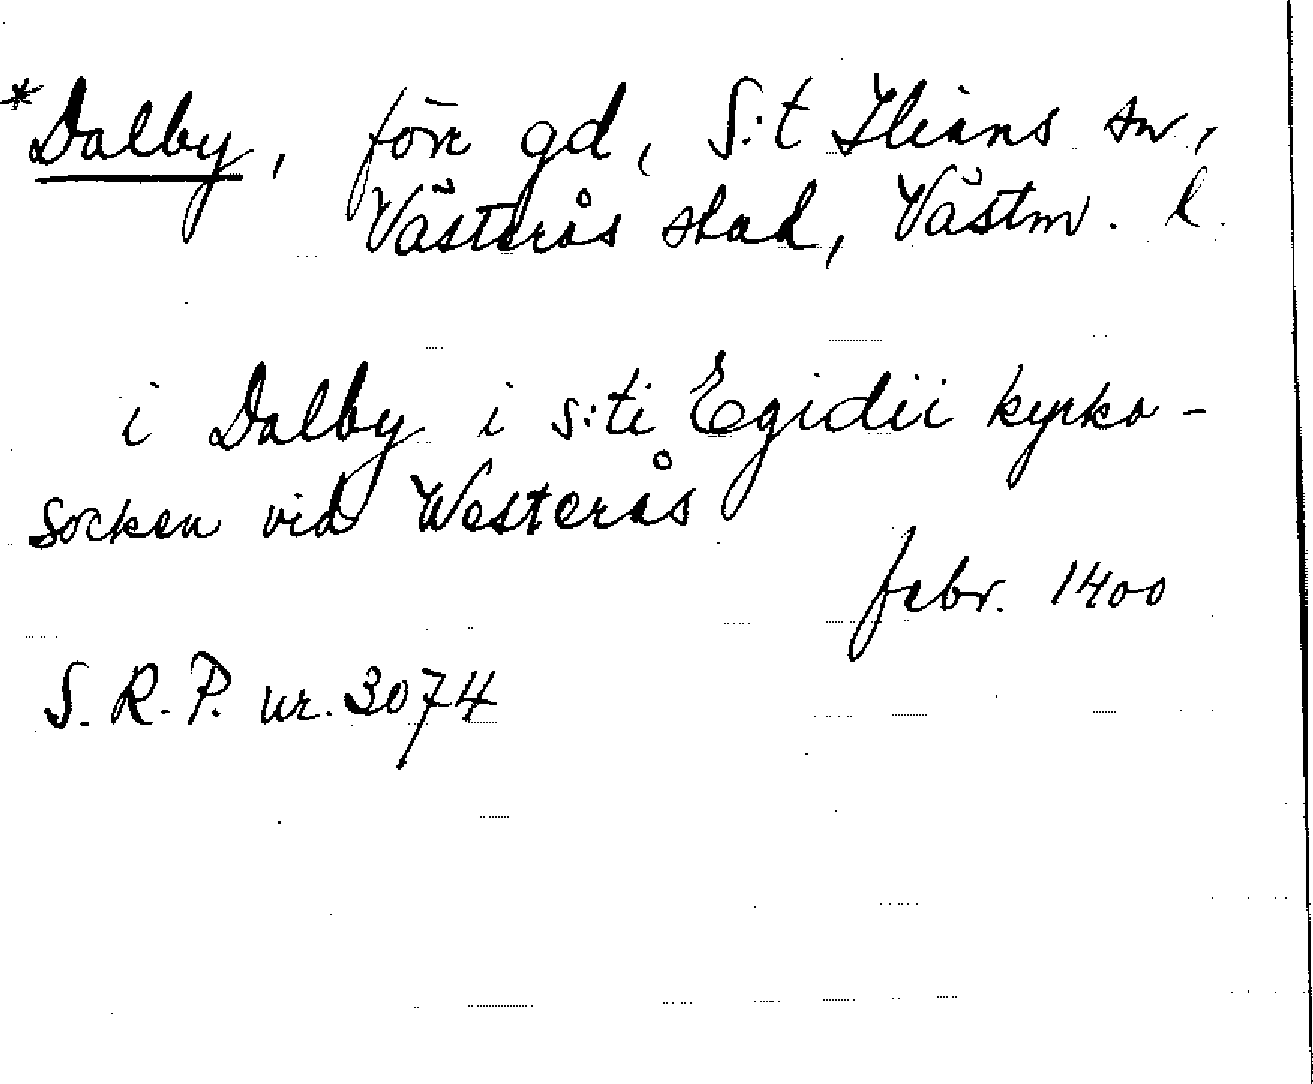 *Dalby, förr gd, S:t Ilians sn,
Västerås stad, Västm. l.
i Dalby i s:ti Egidii kyrko-
socken vid Westerås
febr. 1400
S. R. P. nr. 3074